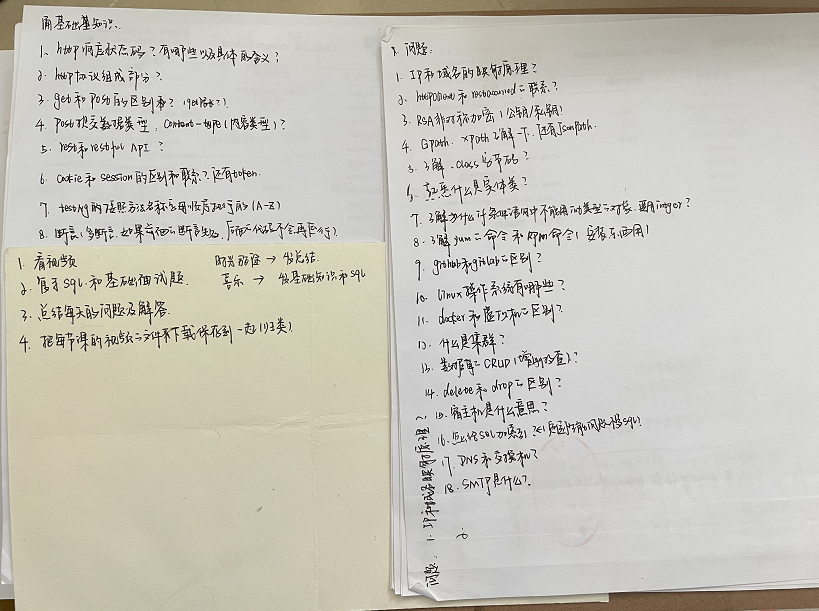 基础知识
1、http响应状态码？有哪些以及具体的含义？
2、http协议组成部分？
3、get和post的区别？
4、post提交数据类型，Content-type（内容类型）？
5、rest和restful API？
6、cookie和session的区别和联系？还有token.
7、testng的按照方法名称的顺序执行的（A-Z）
8、断言（多断言，如果前面断言失败，后面代码不会再运行）.
1、看视频
2、复习SQL和基础面试题.
3、总结每天的问题及解答.
4、把每节课的视频文件下载保存到一起（分类）
→ 发总结.
音乐 → 发基础知识和SQL
问题.
1、IP和域名的映射原理？
2、httpclient和restassured的联系？
3、RSA非对称加密（公钥/私钥）
4、Gpath、xpath了解一下，还有JsonPath.
5、了解.class字节码？
6、什么是实体类？
7、了解为什么
8、了解yum命令和rpm命令（安装东西用）
9、github和gitlab的区别？
10、linux操作系统有哪些？
11、docker和虚拟机的区别？
12、什么是集群？
13、数据库CRUD（增删改查）？
14、delete和drop的区别？
15、宿主机是什么意思？
16、怎么给SQL加索引
17、DNS和交换机？
18、SMTP是什么？
问题： 1、IP和域名映射原理？